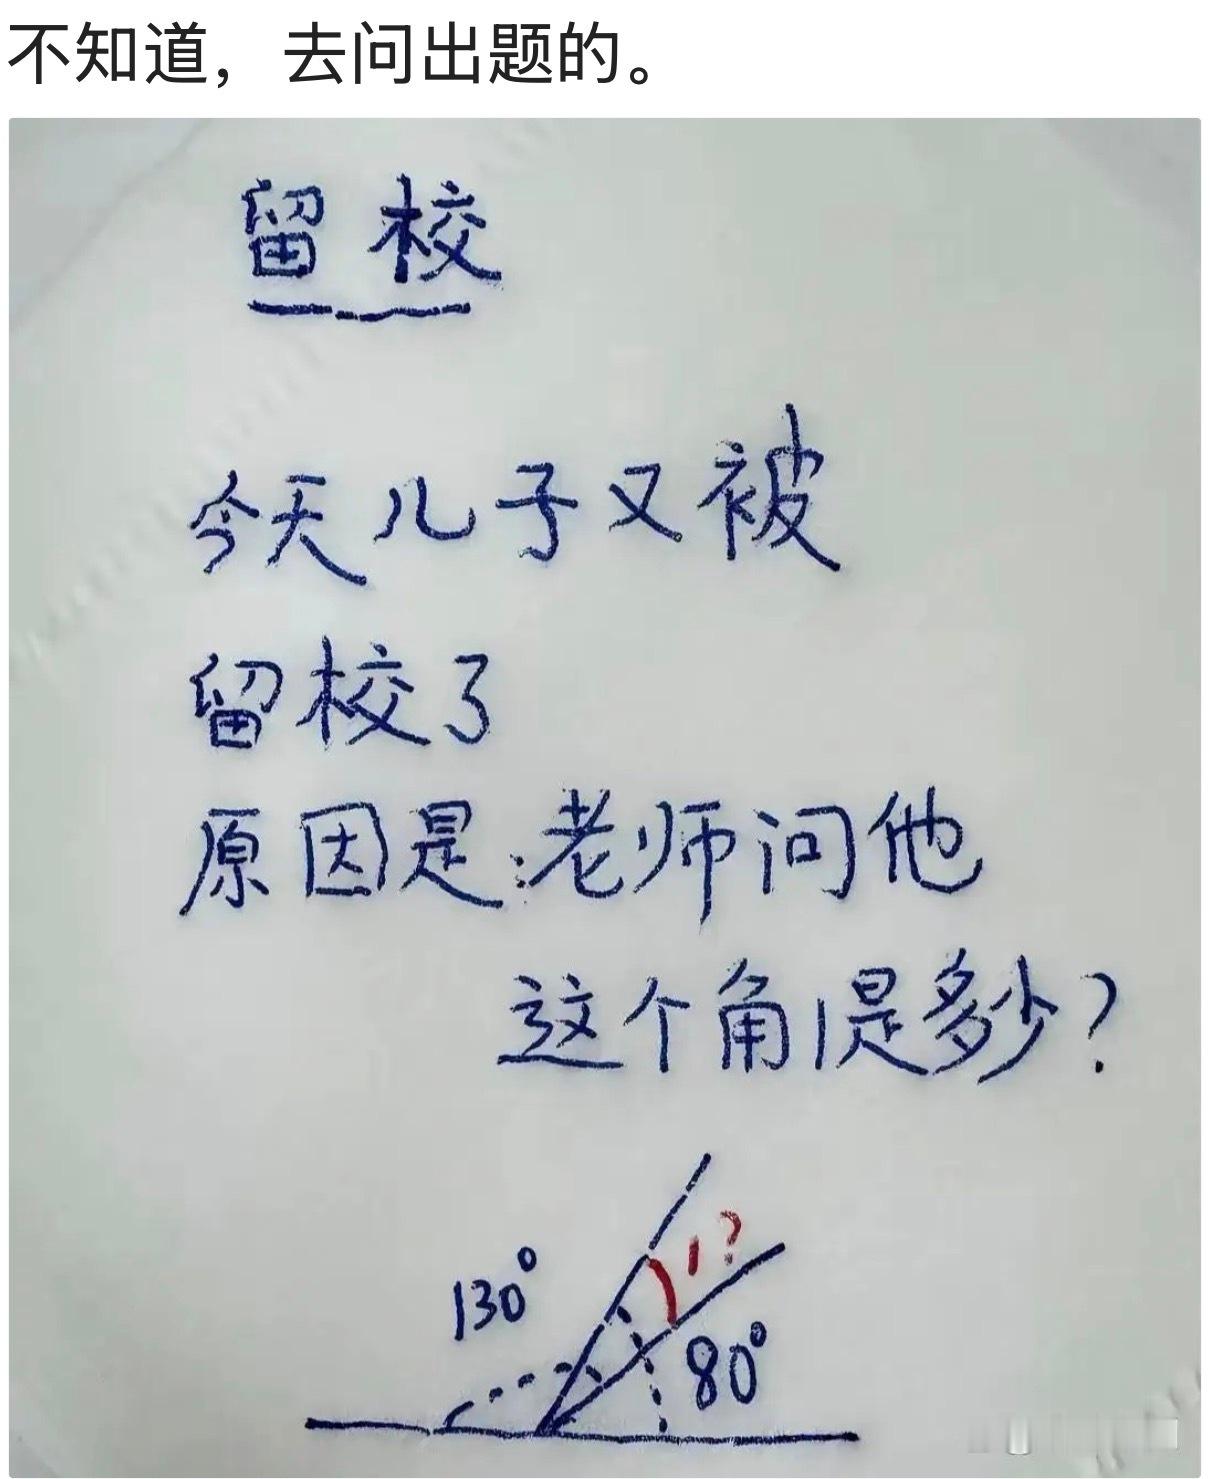 不知道，去问出题的。
留校
今天儿子又被
留校了
原因是:老师问他
这个角1是多少?
1?
130°
80°